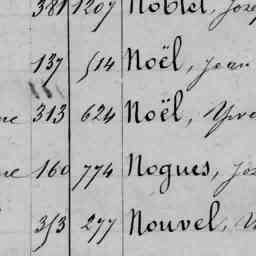 381 1207 Noblet,
137 514 Noël, Jean
313 624 Noël,
160 774 Nogues,
353 277 Nouvel,